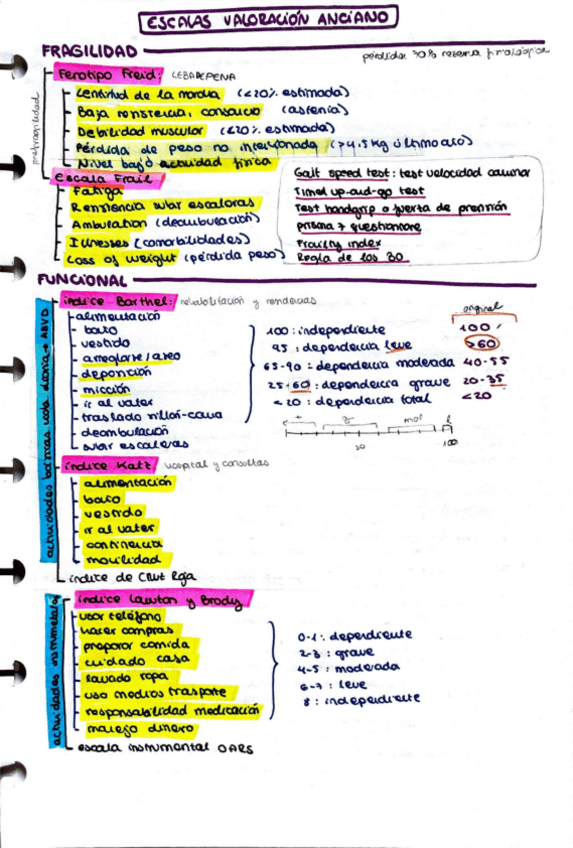 ESCALAS VALORACIÓN ANCIANO
FRAGILIDAD
pérdida 30% reserva fisiológica
prefragilidad
Fenotipo Freid: LEBADEPENA
- Lentitud de la marcha (<20% estimada)
- Baja resistencia, cansancio (astenia)
- Debilidad muscular (<20% estimada)
- Pérdida de peso no intencionada (>4.5 kg último año)
- Nivel bajo actividad física
Escala Frail
- Fatiga
- Resistencia subir escaleras
- Ambulation (deambulación)
- Illnesses (comorbilidades)
- Loss of weight (pérdida peso)
Gait speed test: test velocidad caminar
Timed up-and-go test
Test handgrip o fuerza de prensión
prisma 7 questionnaire
Frailty index
Regla de los 30
FUNCIONAL
actividades básicas vida diaria → ABVD
índice Barthel: rehabilitación y residencias
- alimentación
- baño
- vestido
- arreglarse/aseo
- deposición
- micción
- ir al váter
- traslado sillón-cama
- deambulación
- subir escaleras
100: independiente
95: dependencia leve
65-90: dependencia moderada
25-60: dependencia grave
<20: dependencia total
original
100
>60
40-55
20-35
<20
t g mod l
50 100
índice Katz: hospital y consultas
- alimentación
- baño
- vestido
- ir al váter
- continencia
- movilidad
índice de Cruz Roja
actividades instrumentales
índice Lawton y Brody
- usar teléfono
- hacer compras
- preparar comida
- cuidado casa
- lavado ropa
- uso medios trasporte
- responsabilidad medicación
- manejo dinero
0-1: dependiente
2-3: grave
4-5: moderada
6-7: leve
8: independiente
escala instrumental OARS